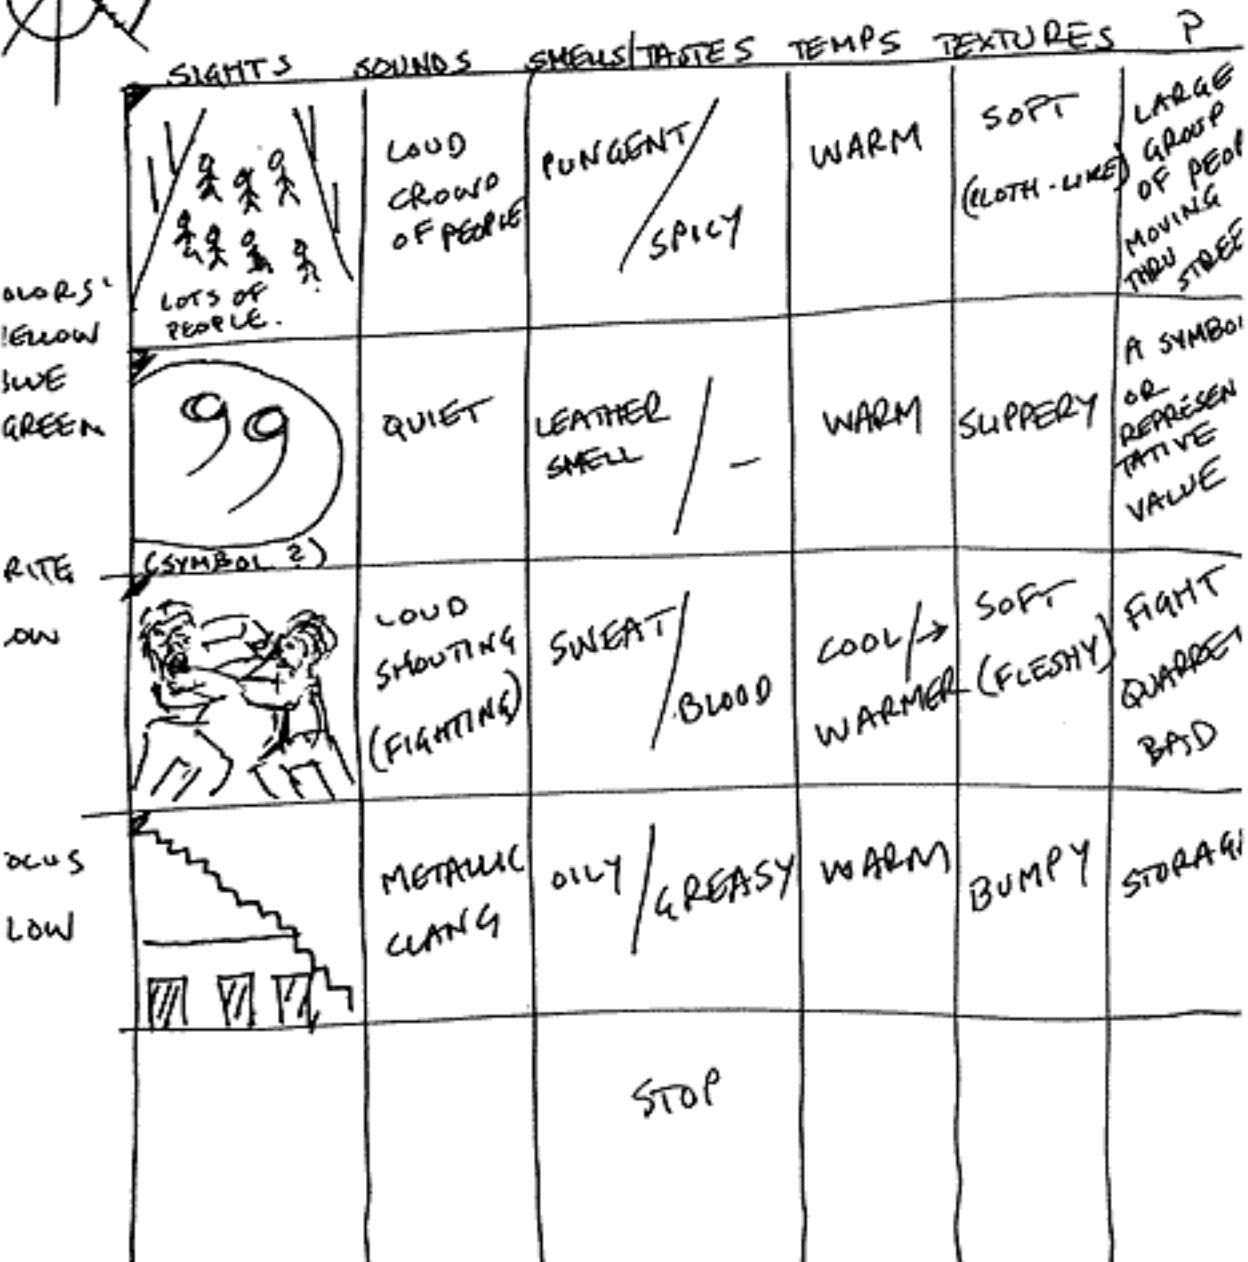 SIGHTS SOUNDS SMELLS/TASTES TEMPS TEXTURES P
LOTS OF
PEOPLE.
LOUD
CROWD
OF PEOPLE
PUNGENT/
SPICY
WARM
SOFT
(CLOTH-LIKE)
LARGE
GROUP
OF PEOP
MOVING
THRU
STREE
OLORS:
ELLOW
LUE
GREEN
(SYMBOL ?)
QUIET
LEATHER
SMELL / —
WARM
SLIPPERY
A SYMBO
OR
REPRESEN
TATIVE
VALUE
RITE
OW
LOUD
SHOUTING
(FIGHTING)
SWEAT/
BLOOD
COOL/→
WARMER
SOFT
(FLESHY)
FIGHT
QUARRE
BAD
OCUS
LOW
METALLIC
CLANG
OILY/
GREASY
WARM
BUMPY
STORAG
STOP